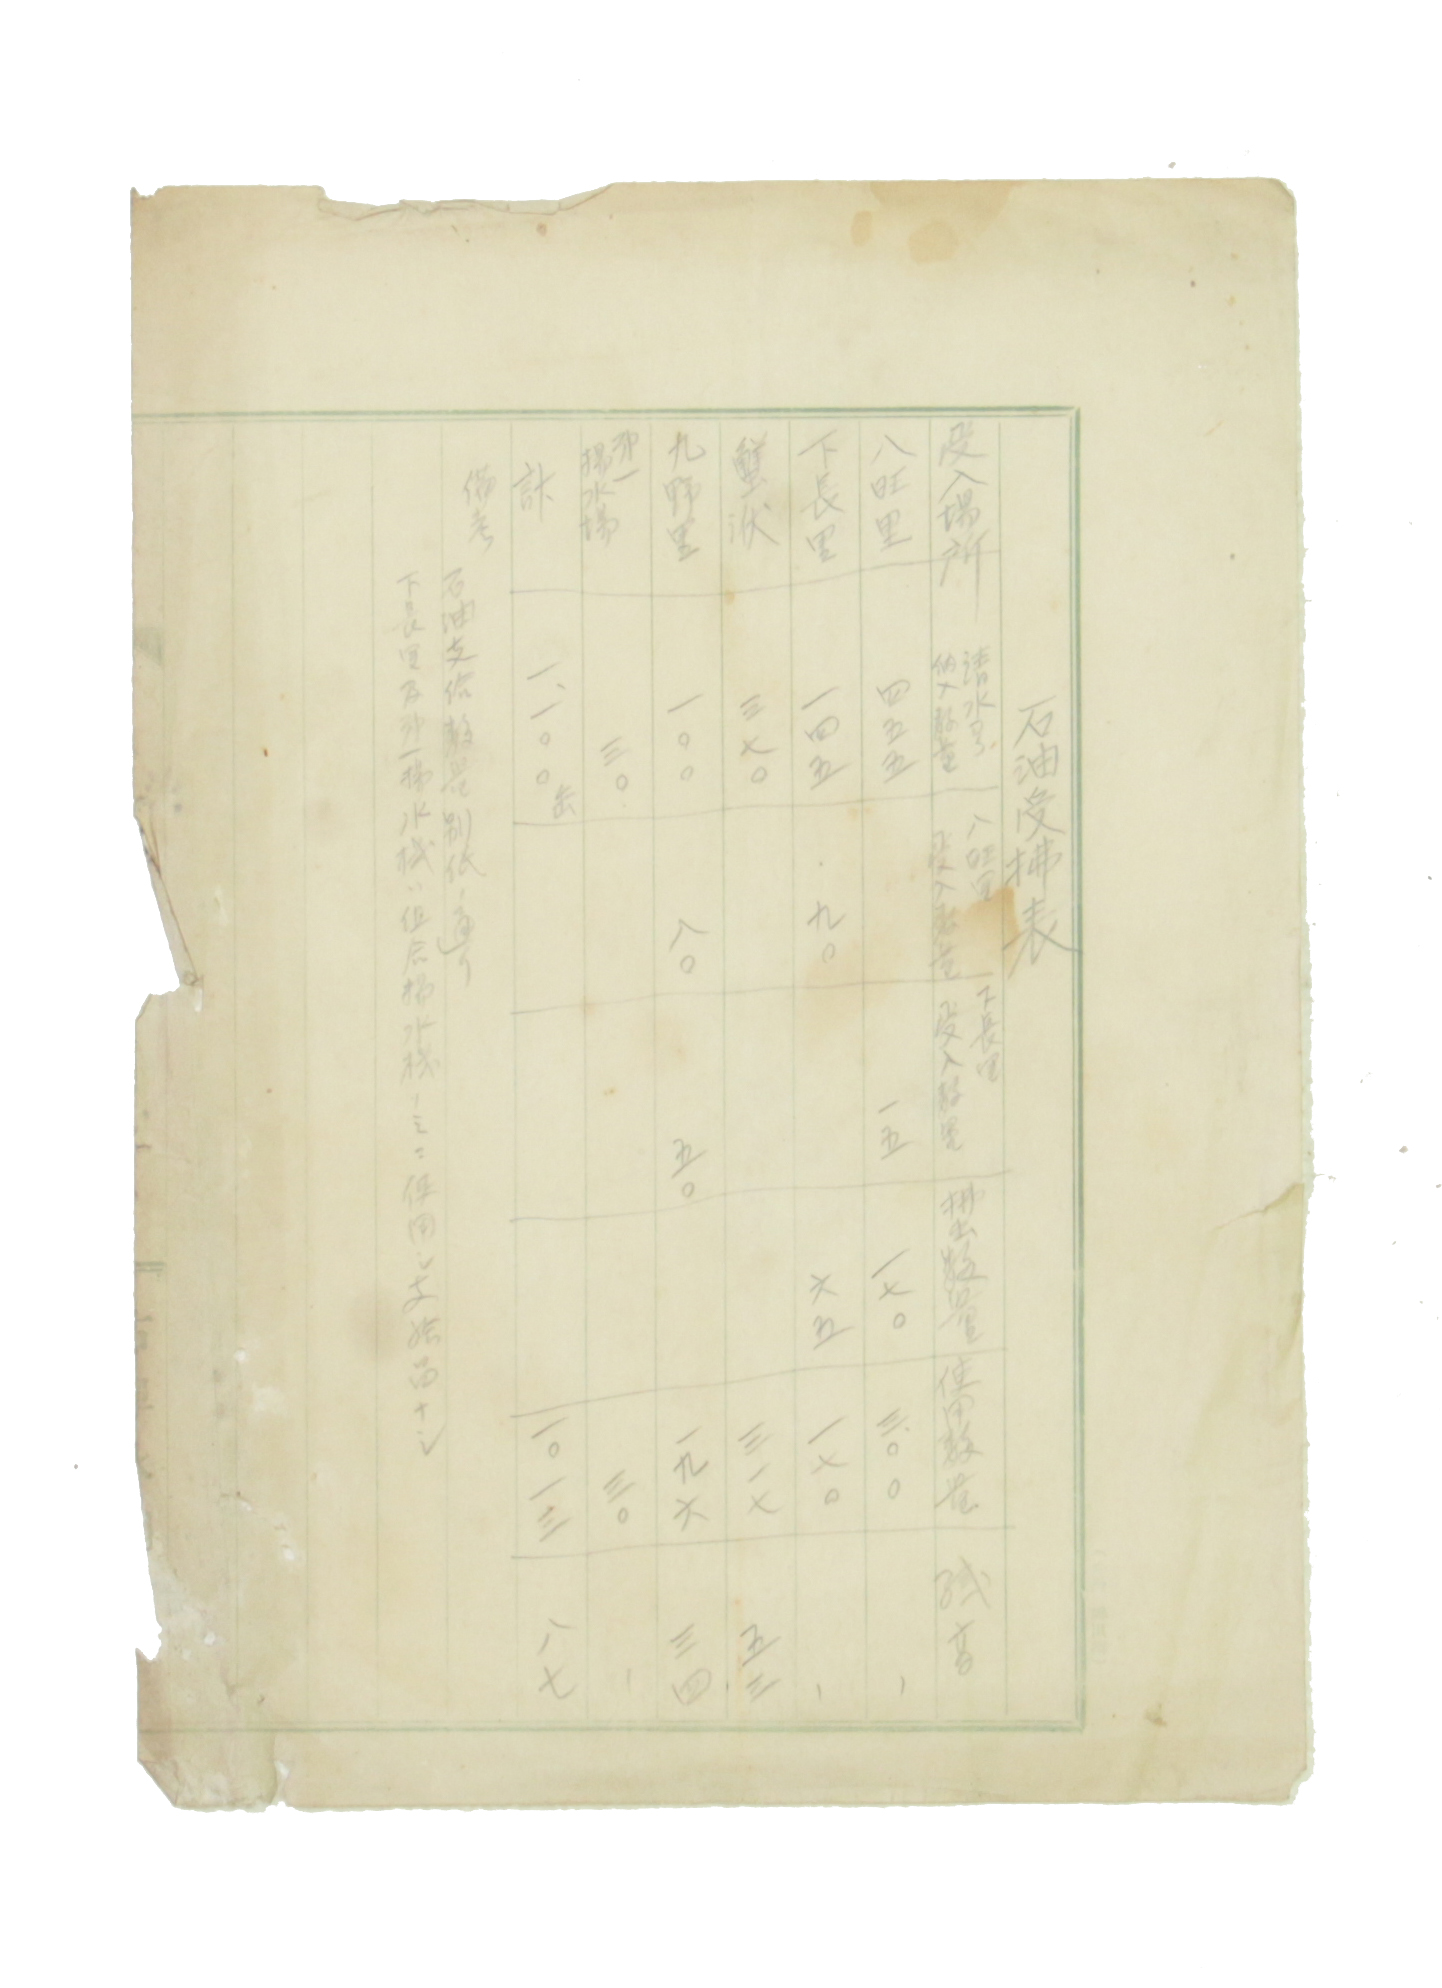 石油受拂表
受入場所
請水号
納入数量
八旺里
受入数量
下長里
受入数量
拂出数量
使用数量
残高
八旺里 四五五 一五 一七〇 三〇〇 、
下長里 一四五 九〇 六五 一七〇 、
蟹洑 三七〇 三一七 五三
九野里 一〇〇 八〇 五〇 一九六 三四
第一
揚水場 三〇 三〇 、
計 一、一〇〇缶 一〇一三 八七
備考
石油支給数量別紙ノ通リ
下長里及第一揚水機ハ組合揚水機ノミニ使用シ支給品ナシ